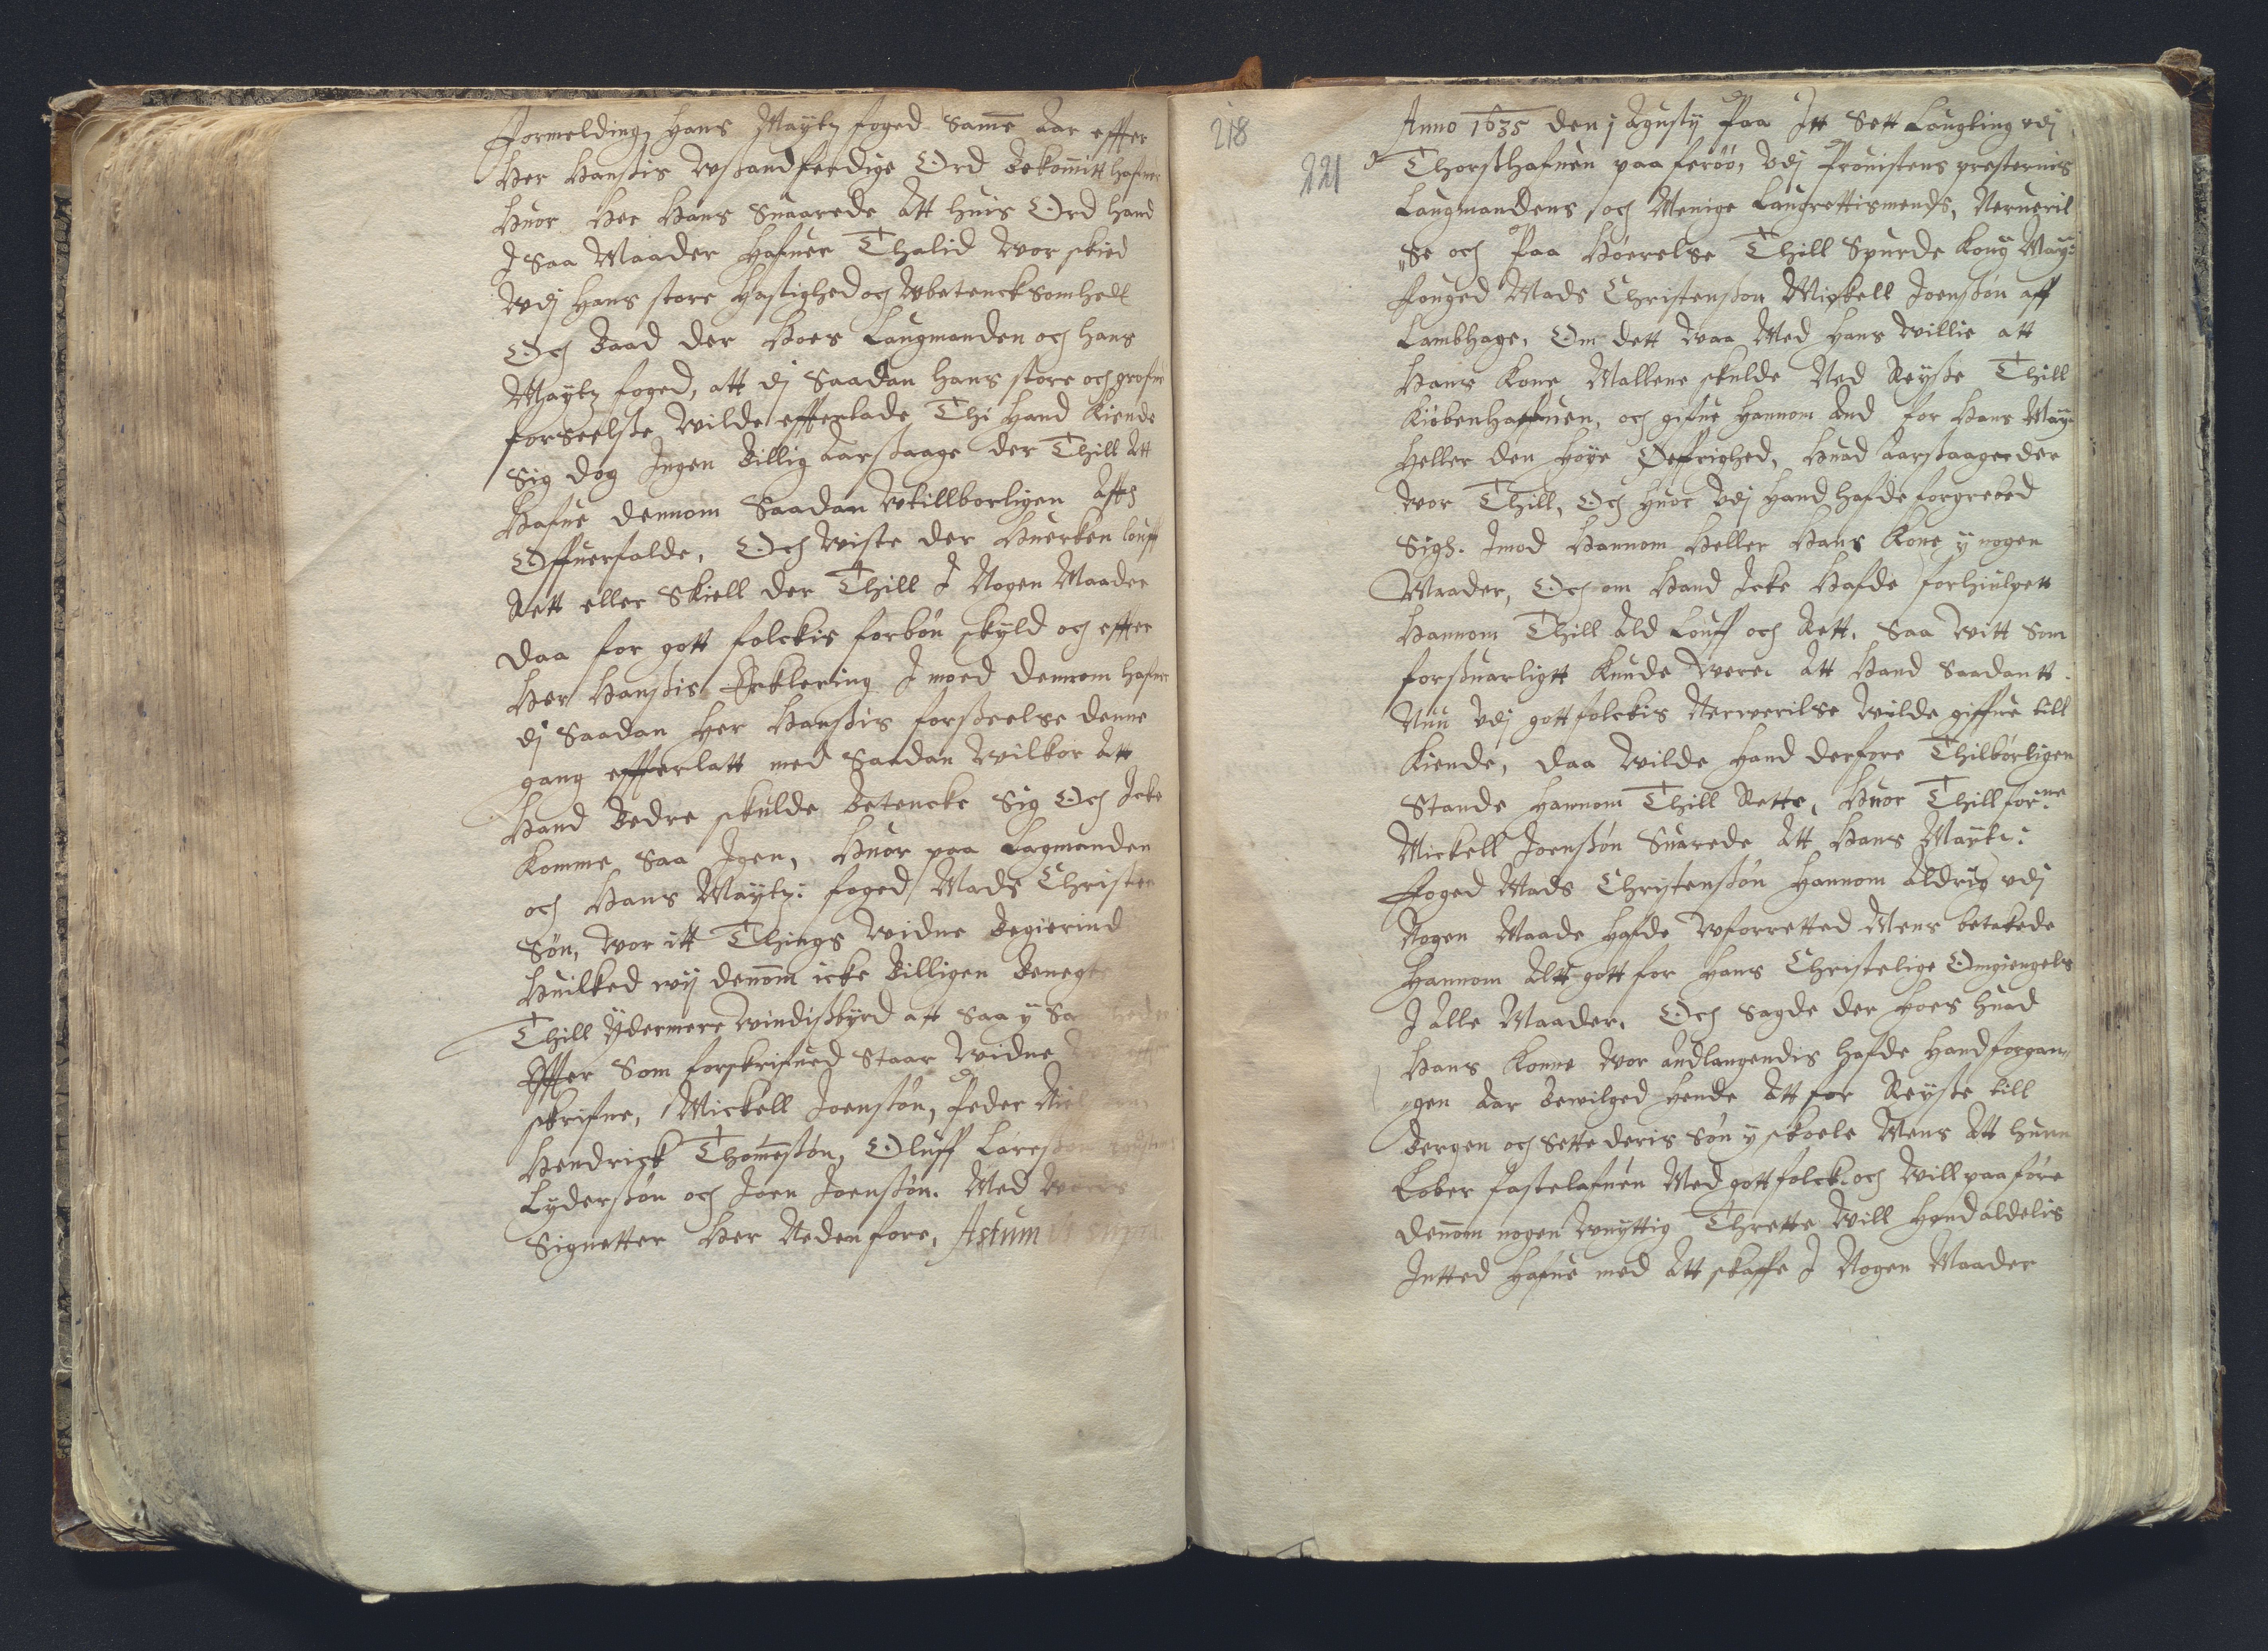 Formelding, Hans Maÿtz foged Samme Aar effter
Her Hanßis Wsandferdige Ord Bekomitt hafuer
Huor Her Hans Suaarede Att huis Ord hand
J Saa Maader Hafuer Thalid Wor skied
Wdj Hans store Hastighed och Wbetencksomhed
Och Baad der Hoes Laugmanden och Hans
Maÿtz foged, att dj Saadan Hans store och grofue
forseelße Wilde effterlade Thi Hand Kiende
Sig dog Ingen Billig Aarsaage der Thill Att
Hafue dennom Saadan Wtillborligen
Offuerfalde, Och Wiste der Huerken louff
Rett eller Skiell der Thill J Nogen Maader
Daa for gott folckis forbøn skyld och effter
Her Hanßis Erklering J moed dennom Hafuer
dj Saadan Her Hanßis forßeelse denne
gang effterlatt med Saadan Wilkor Att
Hand Bedre skulde Betencke Sig Och Icke
Komme Saa Igen, Huor paa Lagmanden
och Hans Maÿtz: foged Mads Christen
Søn, Wor itt Things Widne Begierind
Huilked wij denom icke Billigen Benegte
Thill Ydermere Windißbyrd att Saa ÿ
Effter Som forskrifued Staar Widne
skrifne, Mickell Joenßøn, Peder
Hendrick Thomeßøn, Oluff
Lyderßøn och Joen Joenßøn. Med Wores
Signetter Her Neden fore, Actum ut supra
218
221
Anno 1635 den j Agustÿ Paa Itt Sett Laugting vdj
Thorßhafnen paa ferøø, Vdj Prouistens presternis
Laugmandens och Menige Laugrettismends, Nerueril
"se och Paa Høerelse Thill Spurde Kong May:
fouged Mads Christenßøn Mickell Joenßøn aff
Lambhage, Om dett Waa Med Hans Willie att
Hans Kone Mallene skulde Ned Reÿße Thill
Kiøbenhaffuen, och gifue Hannom And for Hans May:
Heller den Høye Øeffrighed, Huad Aarsaager der
Wor Thill, Och Huor Vdj Hand Hafde forgrebed
Sigh. Imod Hannom Heller Hans Kone ÿ nogen
Maader, Och om Hand Icke Hafde forhiulpett
Hannom Thill Ald Louff och Rett. Saa Witt Som
forsuarligtt Kunde Were. Att Hand Saadantt.
Nuu Vdj gott folckis Nerwerilse Wilde giffue till
Kiende, Daa Wilde Hand derfore Thilbørligen
Stande Hannom Thill Rette, Huor Thill for:ne
Mickell Joenßøn Suarede Att Hans Maytt:
Foged Mads Christenßøn Hannom Aldrig vdj
Nogen Maade Hafde Wforretted Mens betakede
Hannom Altt gott for Hans Christelige Omgiengels
J Alle Maader. Och Sagde der Hoes Huad
Hans Konne Wor Andlangendis Hafde Hand forgan"
"gen Aar Bewilged Hende Att for Reÿße till
Bergen och Sette deris Søn ÿ skoele Mens Att Hunn
Løber fastelafuen Med gott folck. och Will paaføre
denom nogen Wnÿttig Thrette Will Hand aldelis
Intted Hafue med Att skaffe J Nogen Maader